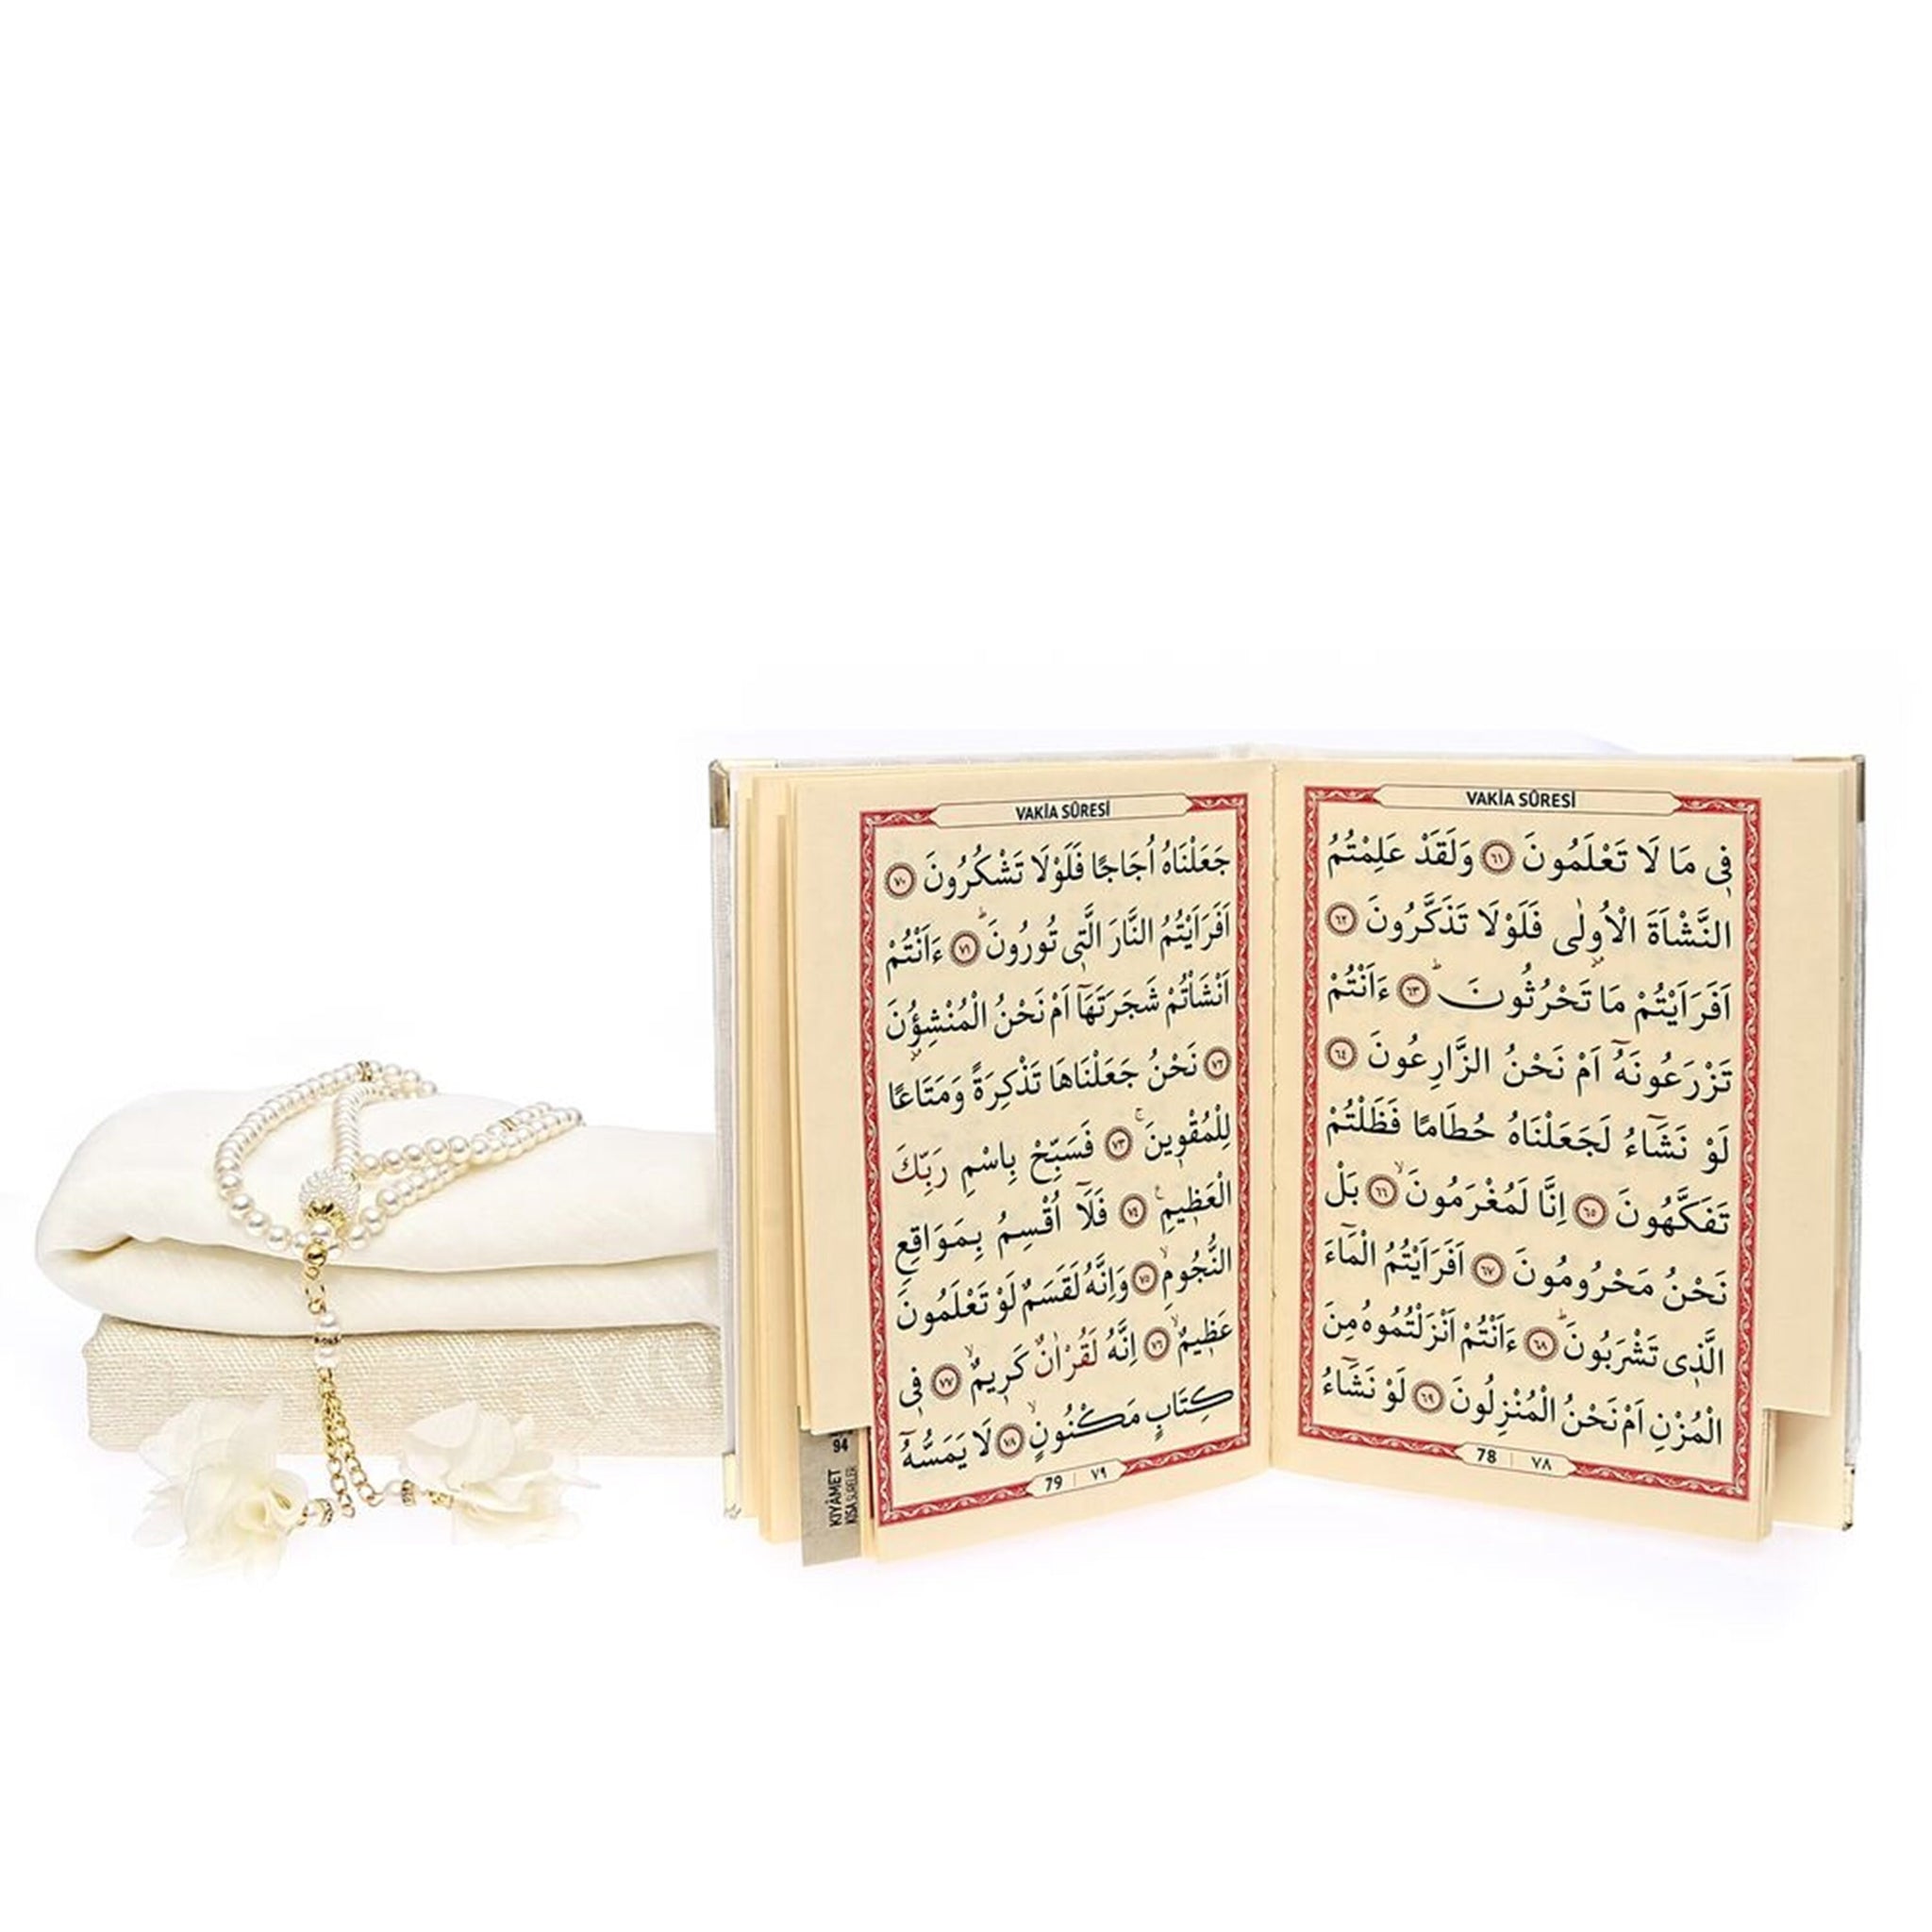 VAKİA SÛRESİ
فٖى مَا لَا تَعْلَمُونَ ﴿٦١﴾ وَلَقَدْ عَلِمْتُمُ
النَّشْاَةَ الْاُولٰى فَلَوْلَا تَذَكَّرُونَ ﴿٦٢﴾
اَفَرَاَيْتُمْ مَا تَحْرُثُونَۜ ﴿٦٣﴾ ءَاَنْتُمْ
تَزْرَعُونَهُٓ اَمْ نَحْنُ الزَّارِعُونَ ﴿٦٤﴾
لَوْ نَشَٓاءُ لَجَعَلْنَاهُ حُطَامًا فَظَلْتُمْ
تَفَكَّهُونَ ﴿٦٥﴾ اِنَّا لَمُغْرَمُونَۙ ﴿٦٦﴾ بَلْ
نَحْنُ مَحْرُومُونَ ﴿٦٧﴾ اَفَرَاَيْتُمُ الْمَٓاءَ
الَّذٖى تَشْرَبُونَۜ ﴿٦٨﴾ ءَاَنْتُمْ اَنْزَلْتُمُوهُ مِنَ
الْمُزْنِ اَمْ نَحْنُ الْمُنْزِلُونَ ﴿٦٩﴾ لَوْ نَشَٓاءُ
78 | ٧٨
VAKİA SÛRESİ
جَعَلْنَاهُ اُجَاجًا فَلَوْلَا تَشْكُرُونَ ﴿٧٠﴾
اَفَرَاَيْتُمُ النَّارَ الَّتٖى تُورُونَۜ ﴿٧١﴾ ءَاَنْتُمْ
اَنْشَاْتُمْ شَجَرَتَهَٓا اَمْ نَحْنُ الْمُنْشِؤُنَ
﴿٧٢﴾ نَحْنُ جَعَلْنَاهَا تَذْكِرَةً وَمَتَاعًا
لِلْمُقْوٖينَۚ ﴿٧٣﴾ فَسَبِّحْ بِاسْمِ رَبِّكَ
الْعَظٖيمِ ﴿٧٤﴾ فَلَٓا اُقْسِمُ بِمَوَاقِعِ
النُّجُومِۙ ﴿٧٥﴾ وَاِنَّهُ لَقَسَمٌ لَوْ تَعْلَمُونَ
عَظٖيمٌۙ ﴿٧٦﴾ اِنَّهُ لَقُرْاٰنٌ كَرٖيمٌۙ ﴿٧٧﴾ فٖى
كِتَابٍ مَكْنُونٍۙ ﴿٧٨﴾ لَا يَمَسُّهُٓ
79 | ٧٩
94
KIYÂMET
KISA SÛRELER